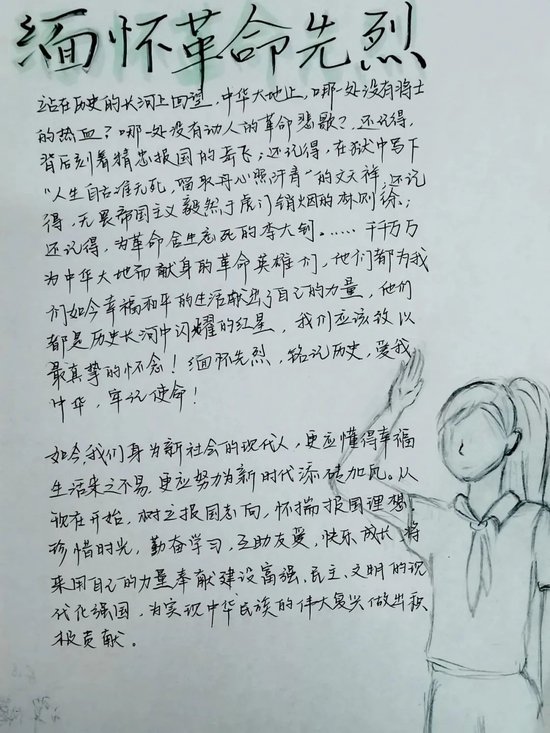 缅怀革命先烈
站在历史的长河上回望，中华大地上，哪一处没有将士
的热血？哪一处没有动人的革命悲歌？，还记得，
背后刻着精忠报国的岳飞；还记得，在狱中写下
“人生自古谁无死，留取丹心照汗青”的文天祥；还记
得，无畏帝国主义毅然于虎门销烟的林则徐；
还记得，为革命舍生忘死的李大钊。……千千万万
为中华大地而献身的革命英雄们，他们都为我
们如今幸福和平的生活献出了自己的力量，他们
都是历史长河中闪耀的红星，我们应该致以
最真挚的怀念！缅怀先烈，铭记历史，爱我
中华，牢记使命！
如今，我们身为新社会的现代人，更应懂得幸福
生活来之不易，更应努力为新时代添砖加瓦。从
现在开始，树立报国志向，怀揣报国理想，
珍惜时光，勤奋学习，互助友爱，快乐成长，将
来用自己的力量奉献建设富强、民主、文明的现
代化强国，为实现中华民族的伟大复兴做出积
极贡献。